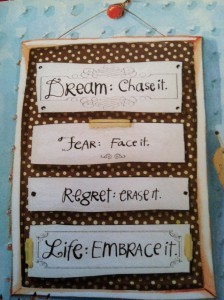 Dream: Chase it.
Fear: Face it.
Regret: ERASE it.
Life: EMBRACE it.